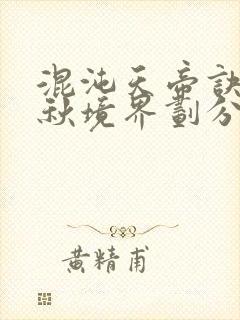 混沌天帝訣
秋境界劃分
黄精甫